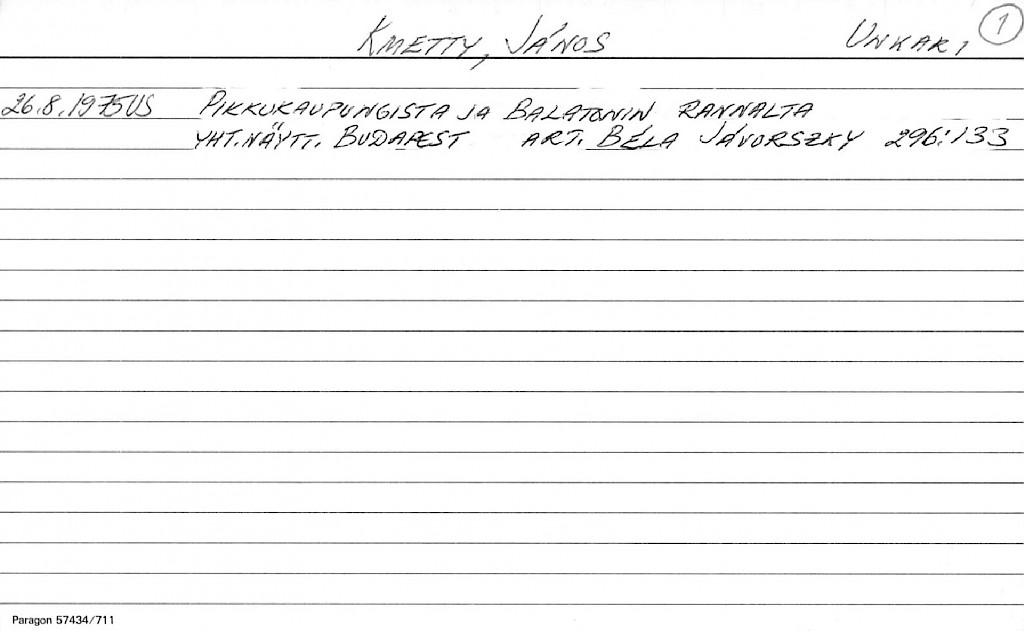 KMETTY, JÁNOS UNKARI 1
26.8.1975 US PIKKUKAUPUNGISTA JA BALATONIN RANNALTA
YHT.NÄYTT. BUDAPEST ART. BÉLA JÁVORSZKY 296:133
Paragon 57434/711